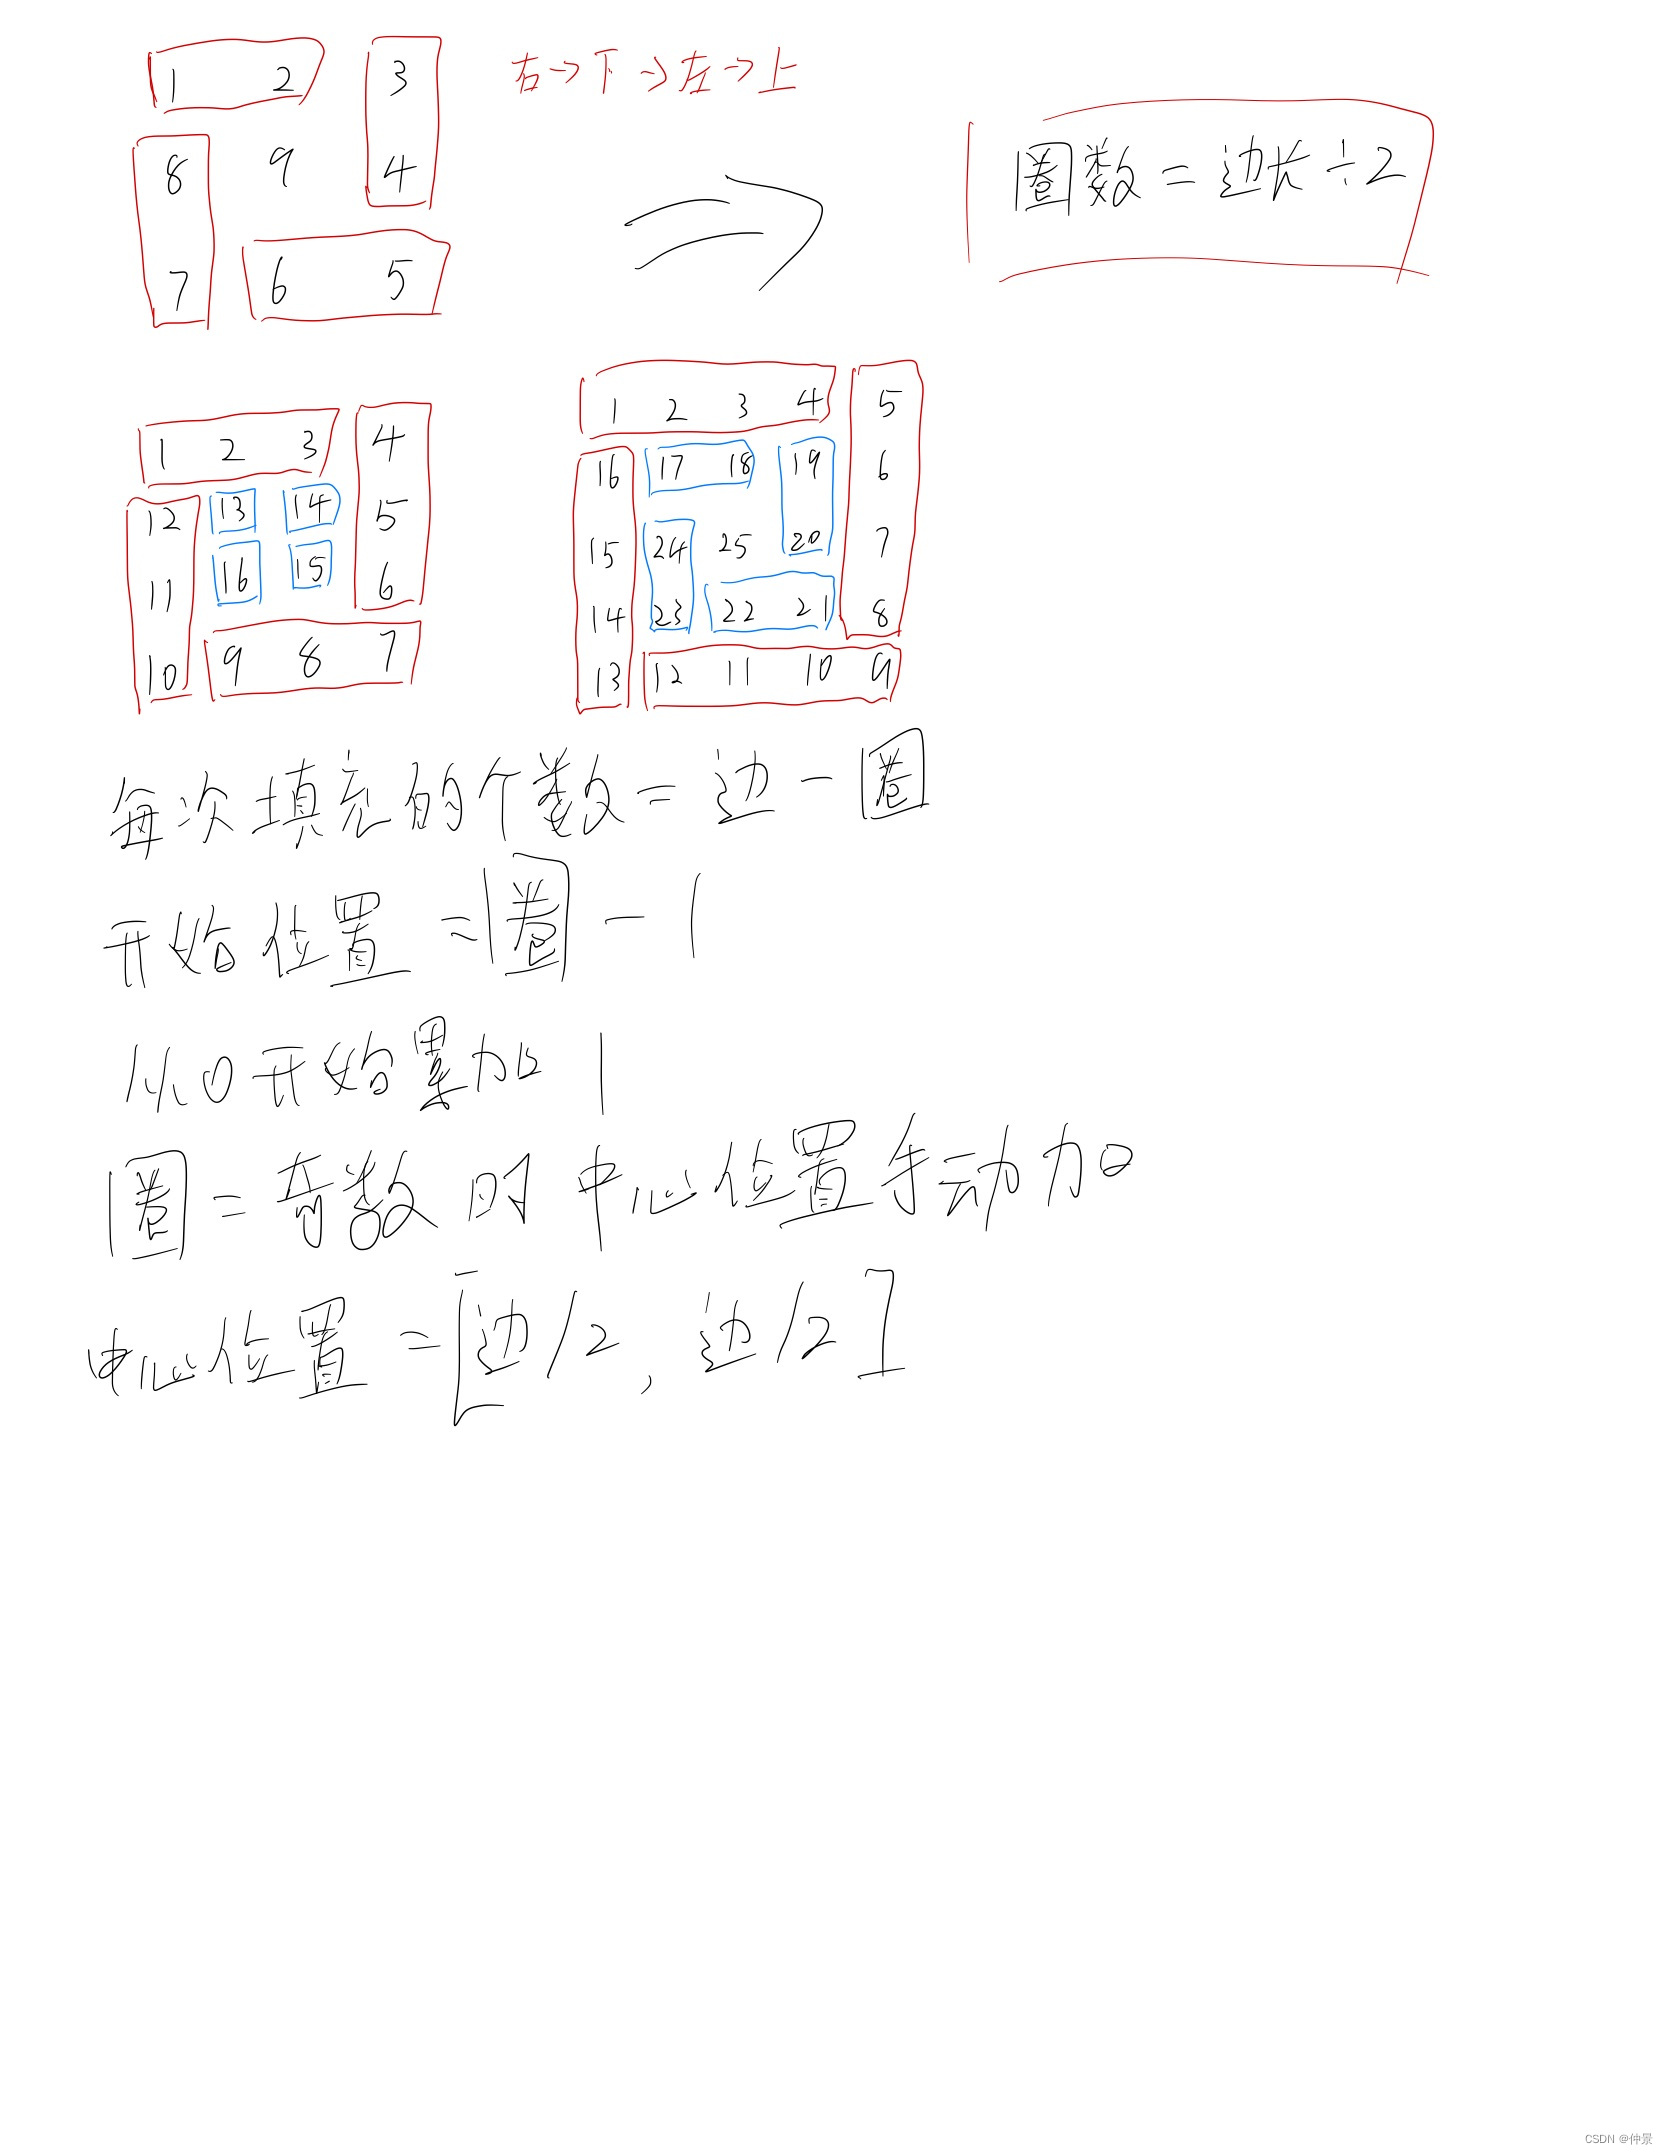 1 2 3 右→下→左→上
圈数=边长÷2
8 9 4
7 6 5
1 2 3 4
12 13 14 5
11 16 15 6
10 9 8 7
1 2 3 4 5
16 17 18 19 6
15 24 25 20 7
14 23 22 21 8
13 12 11 10 9
每次填充的个数=边-圈
开始位置=圈-1
从0开始累加1
圈=奇数时中心位置手动加
中心位置=[边/2,边/2]
CSDN @仲景